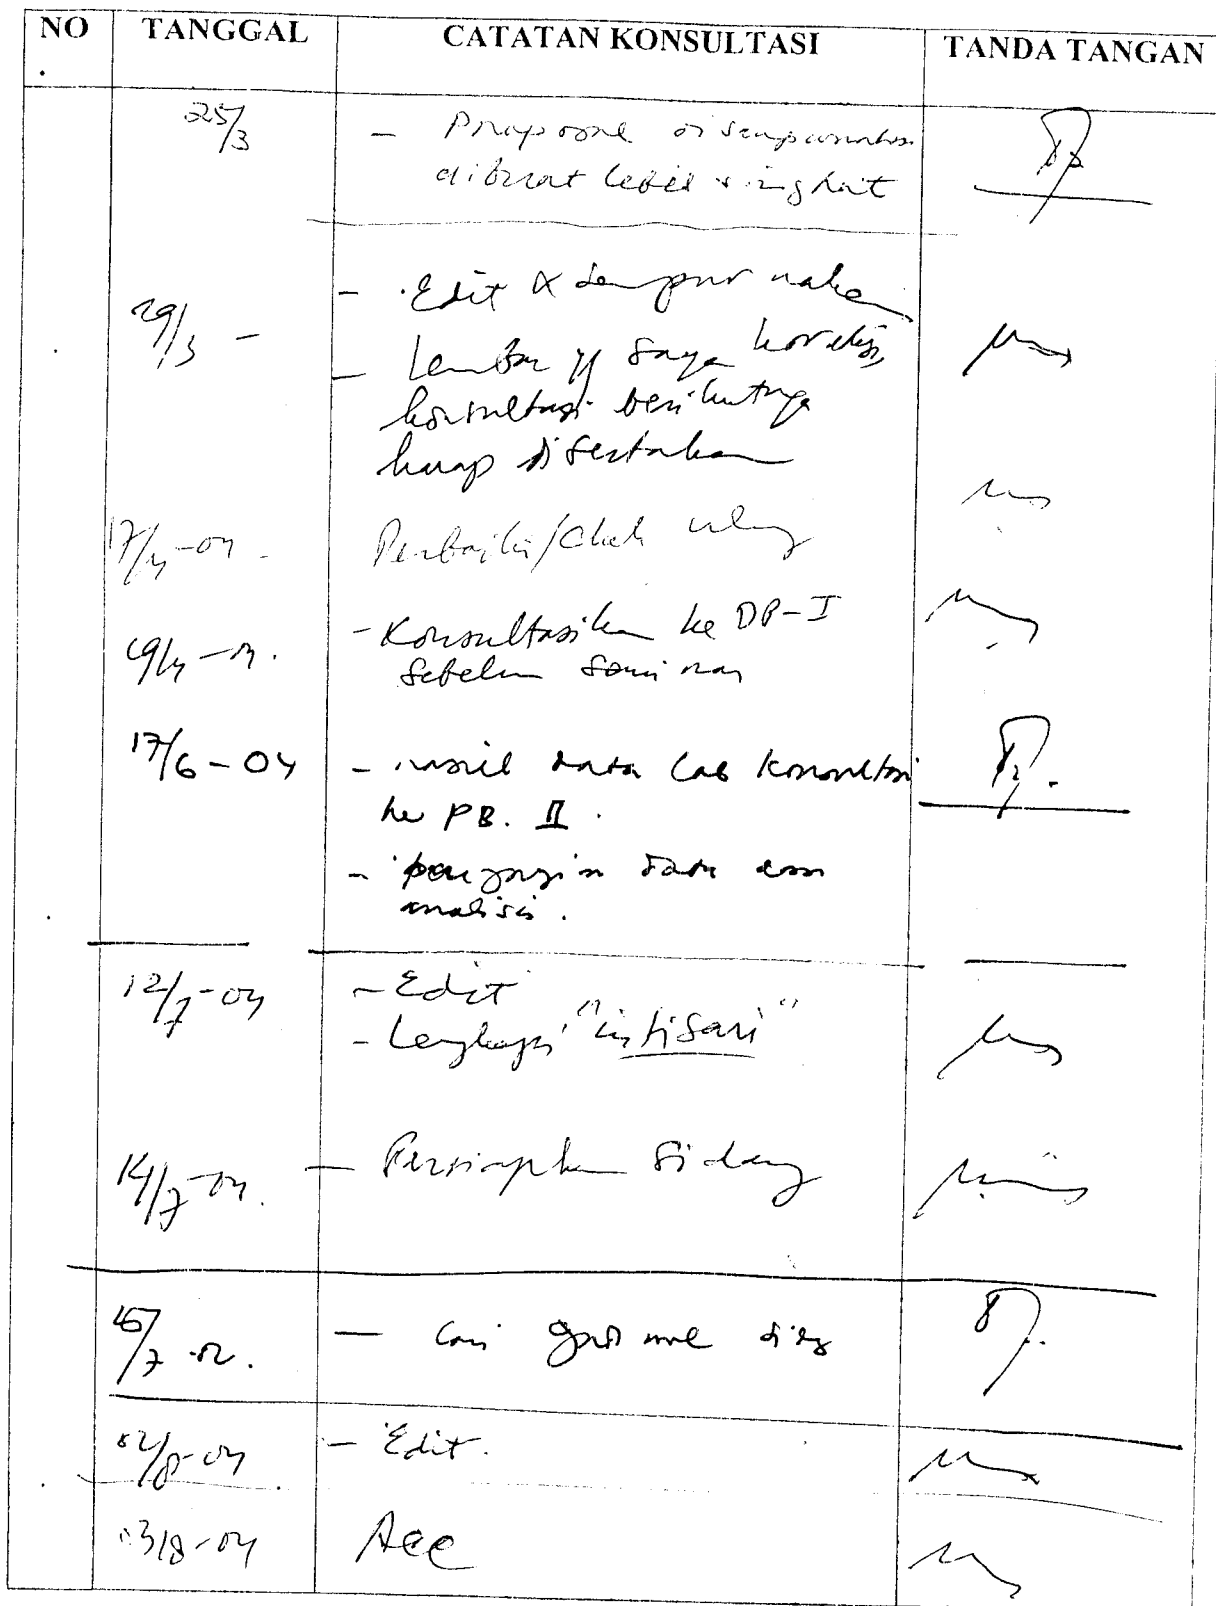 NO TANGGAL CATATAN KONSULTASI TANDA TANGAN
.
25/3 - Proposal disempurnakan
dibuat lebih singkat
- Edit & sempurnakan
29/3 - - Lembar yg saya koreksi,
konsultasi berikutnya
harap disertakan
17/4-04. Perbaiki/Chek ulang
19/4-04. - Konsultasikan ke DP-I
sebelum seminar
17/6-04 - hasil data lab konsultasi
ke PB. II.
- data dan
analisis.
12/7-04 - Edit
- Lengkapi "intisari"
14/7-04. - Persiapkan Sidang
/7
- Edit.
/8-04
03/8-04 Acc